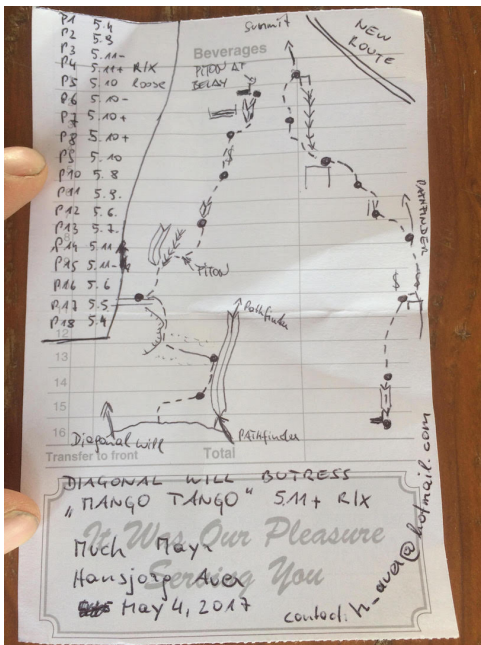 P1 5.4
P2 5.9
P3 5.11-
P4 5.11+ R/X
P5 5.10 Loose
P6 5.10-
P7 5.10+
P8 5.10+
P9 5.10
P10 5.8
P11 5.9.
P12 5.6.
P13 5.7.
P14 5.11
P15 5.11-
P16 5.6
P17 5.5
P18 5.4
Summit
NEW
ROUTE
Beverages
PITON AT
BELAY
PATHFINDER
PITON
Pathfinder
12
13
14
15
16
Diagonal will
PAthfinder
Transfer to front
Total
DIAGONAL WILL BUTRESS
„MANGO TANGO" 5.11+ R/X
It Was Our Pleasure
Serving You
Much Mayr
Hansjorg Auer
May 4, 2017
contact: h-auer@hotmail.com